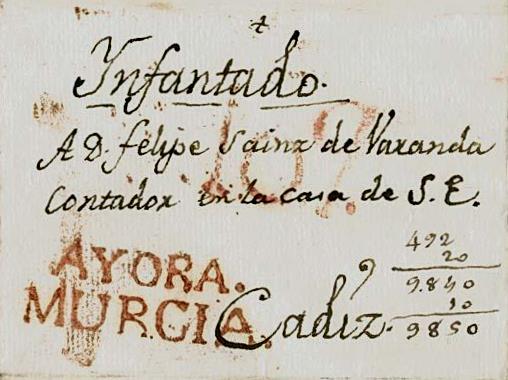 +
Ynfantado.
A D. Felipe Sainz de Varanda
Contador en la casa de S. E.
AYORA.
MURCIA.
Cadiz.
492
20
9.840
10
9850